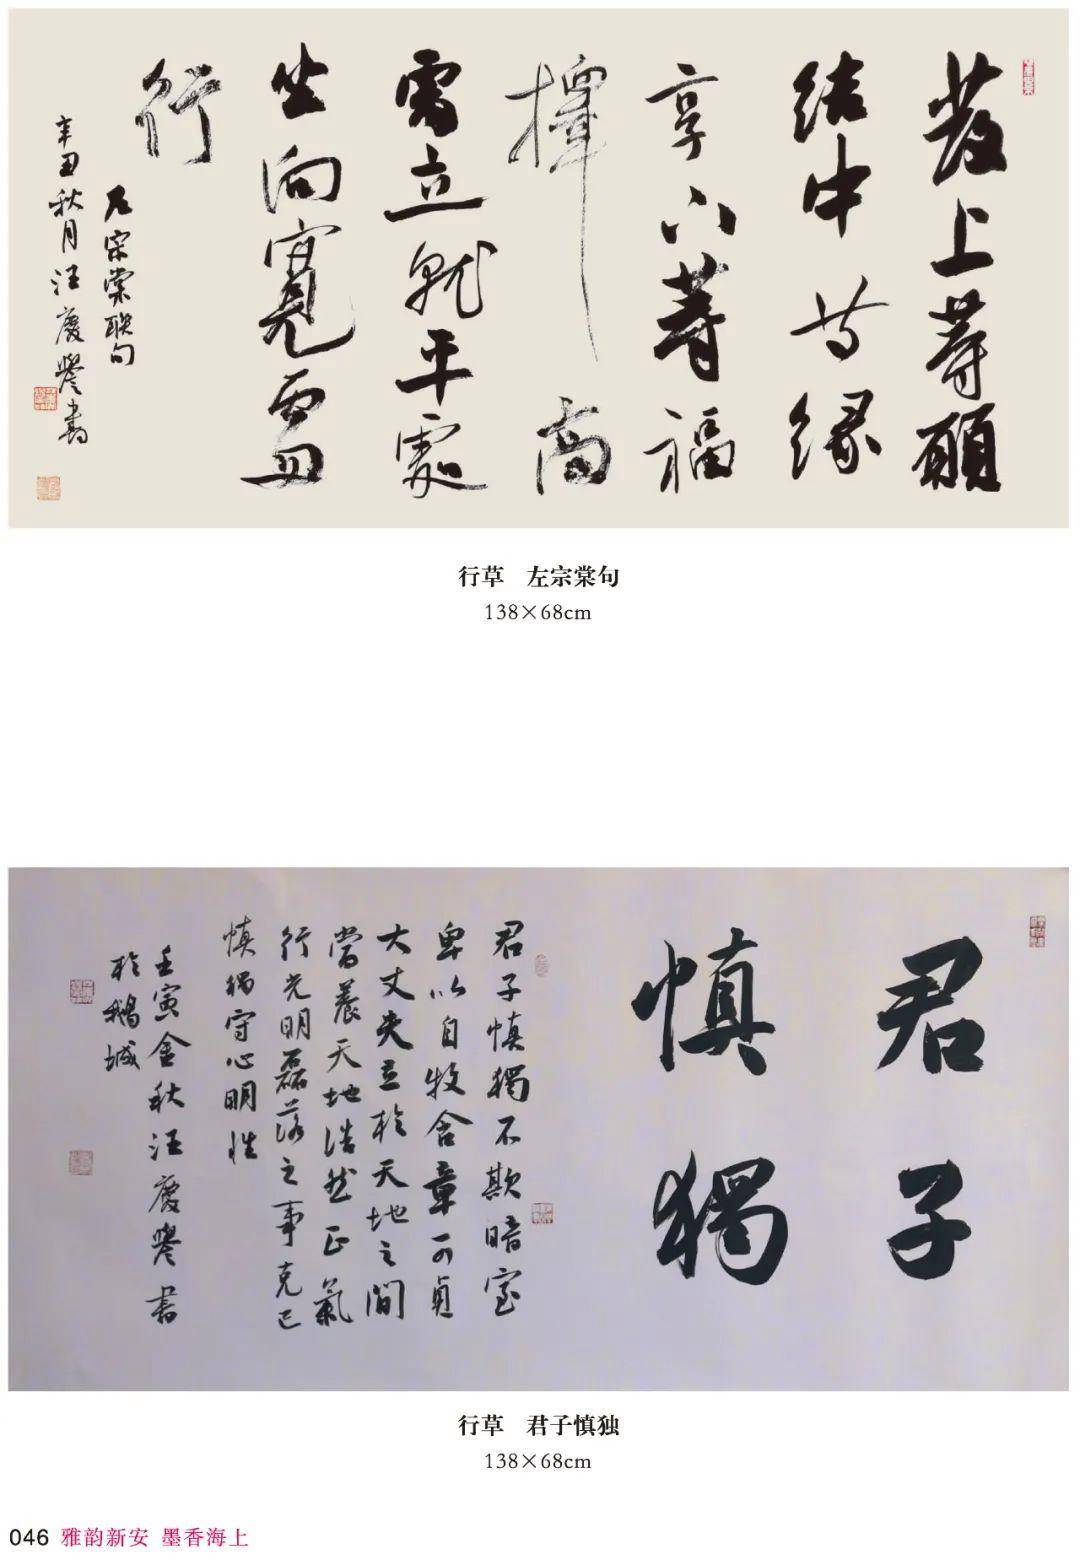 發上等願
結中等緣
享下等福
擇高
處立就平處
坐向寬處
行
左宗棠联句
辛丑秋月汪慶譽書
行草 左宗棠句
138×68cm
君子
慎獨
君子慎獨不欺暗室
卑以自牧含章可貞
大丈夫立於天地之間
當養天地浩然正氣
行光明磊落之事克己
慎獨守心明性
壬寅金秋汪慶譽書
於鵝城
行草 君子慎独
138×68cm
046 雅韵新安 墨香海上